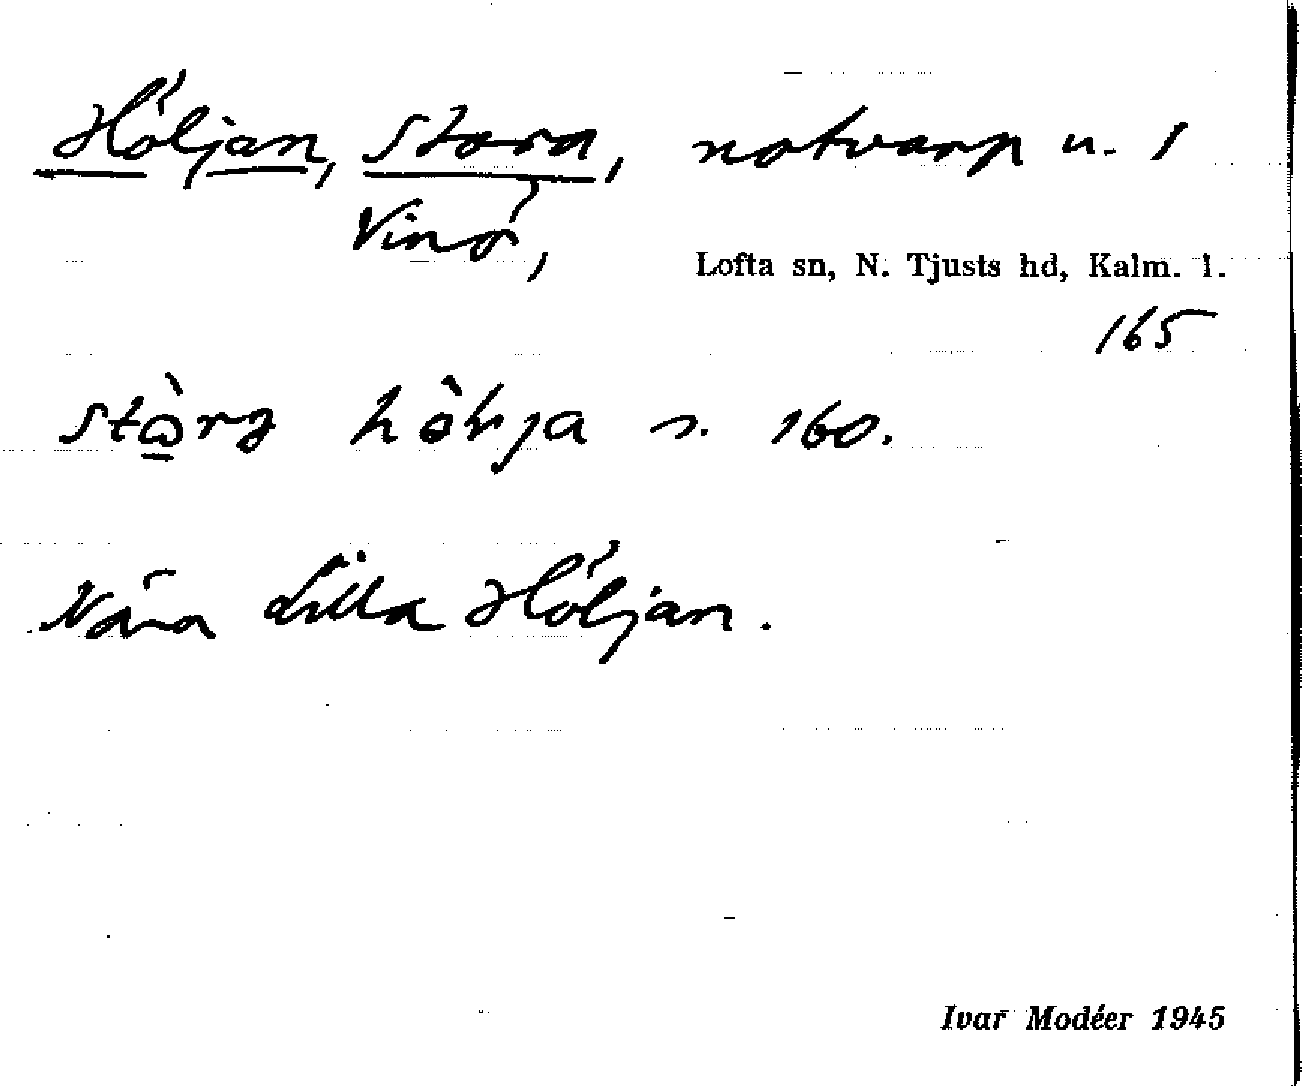 Höljan, Stora, notvarp u. 1
Vinö,
Lofta sn, N. Tjusts hd, Kalm. l.
165
s. 160.
Nära Lilla Höljan.
Ivar Modéer 1945